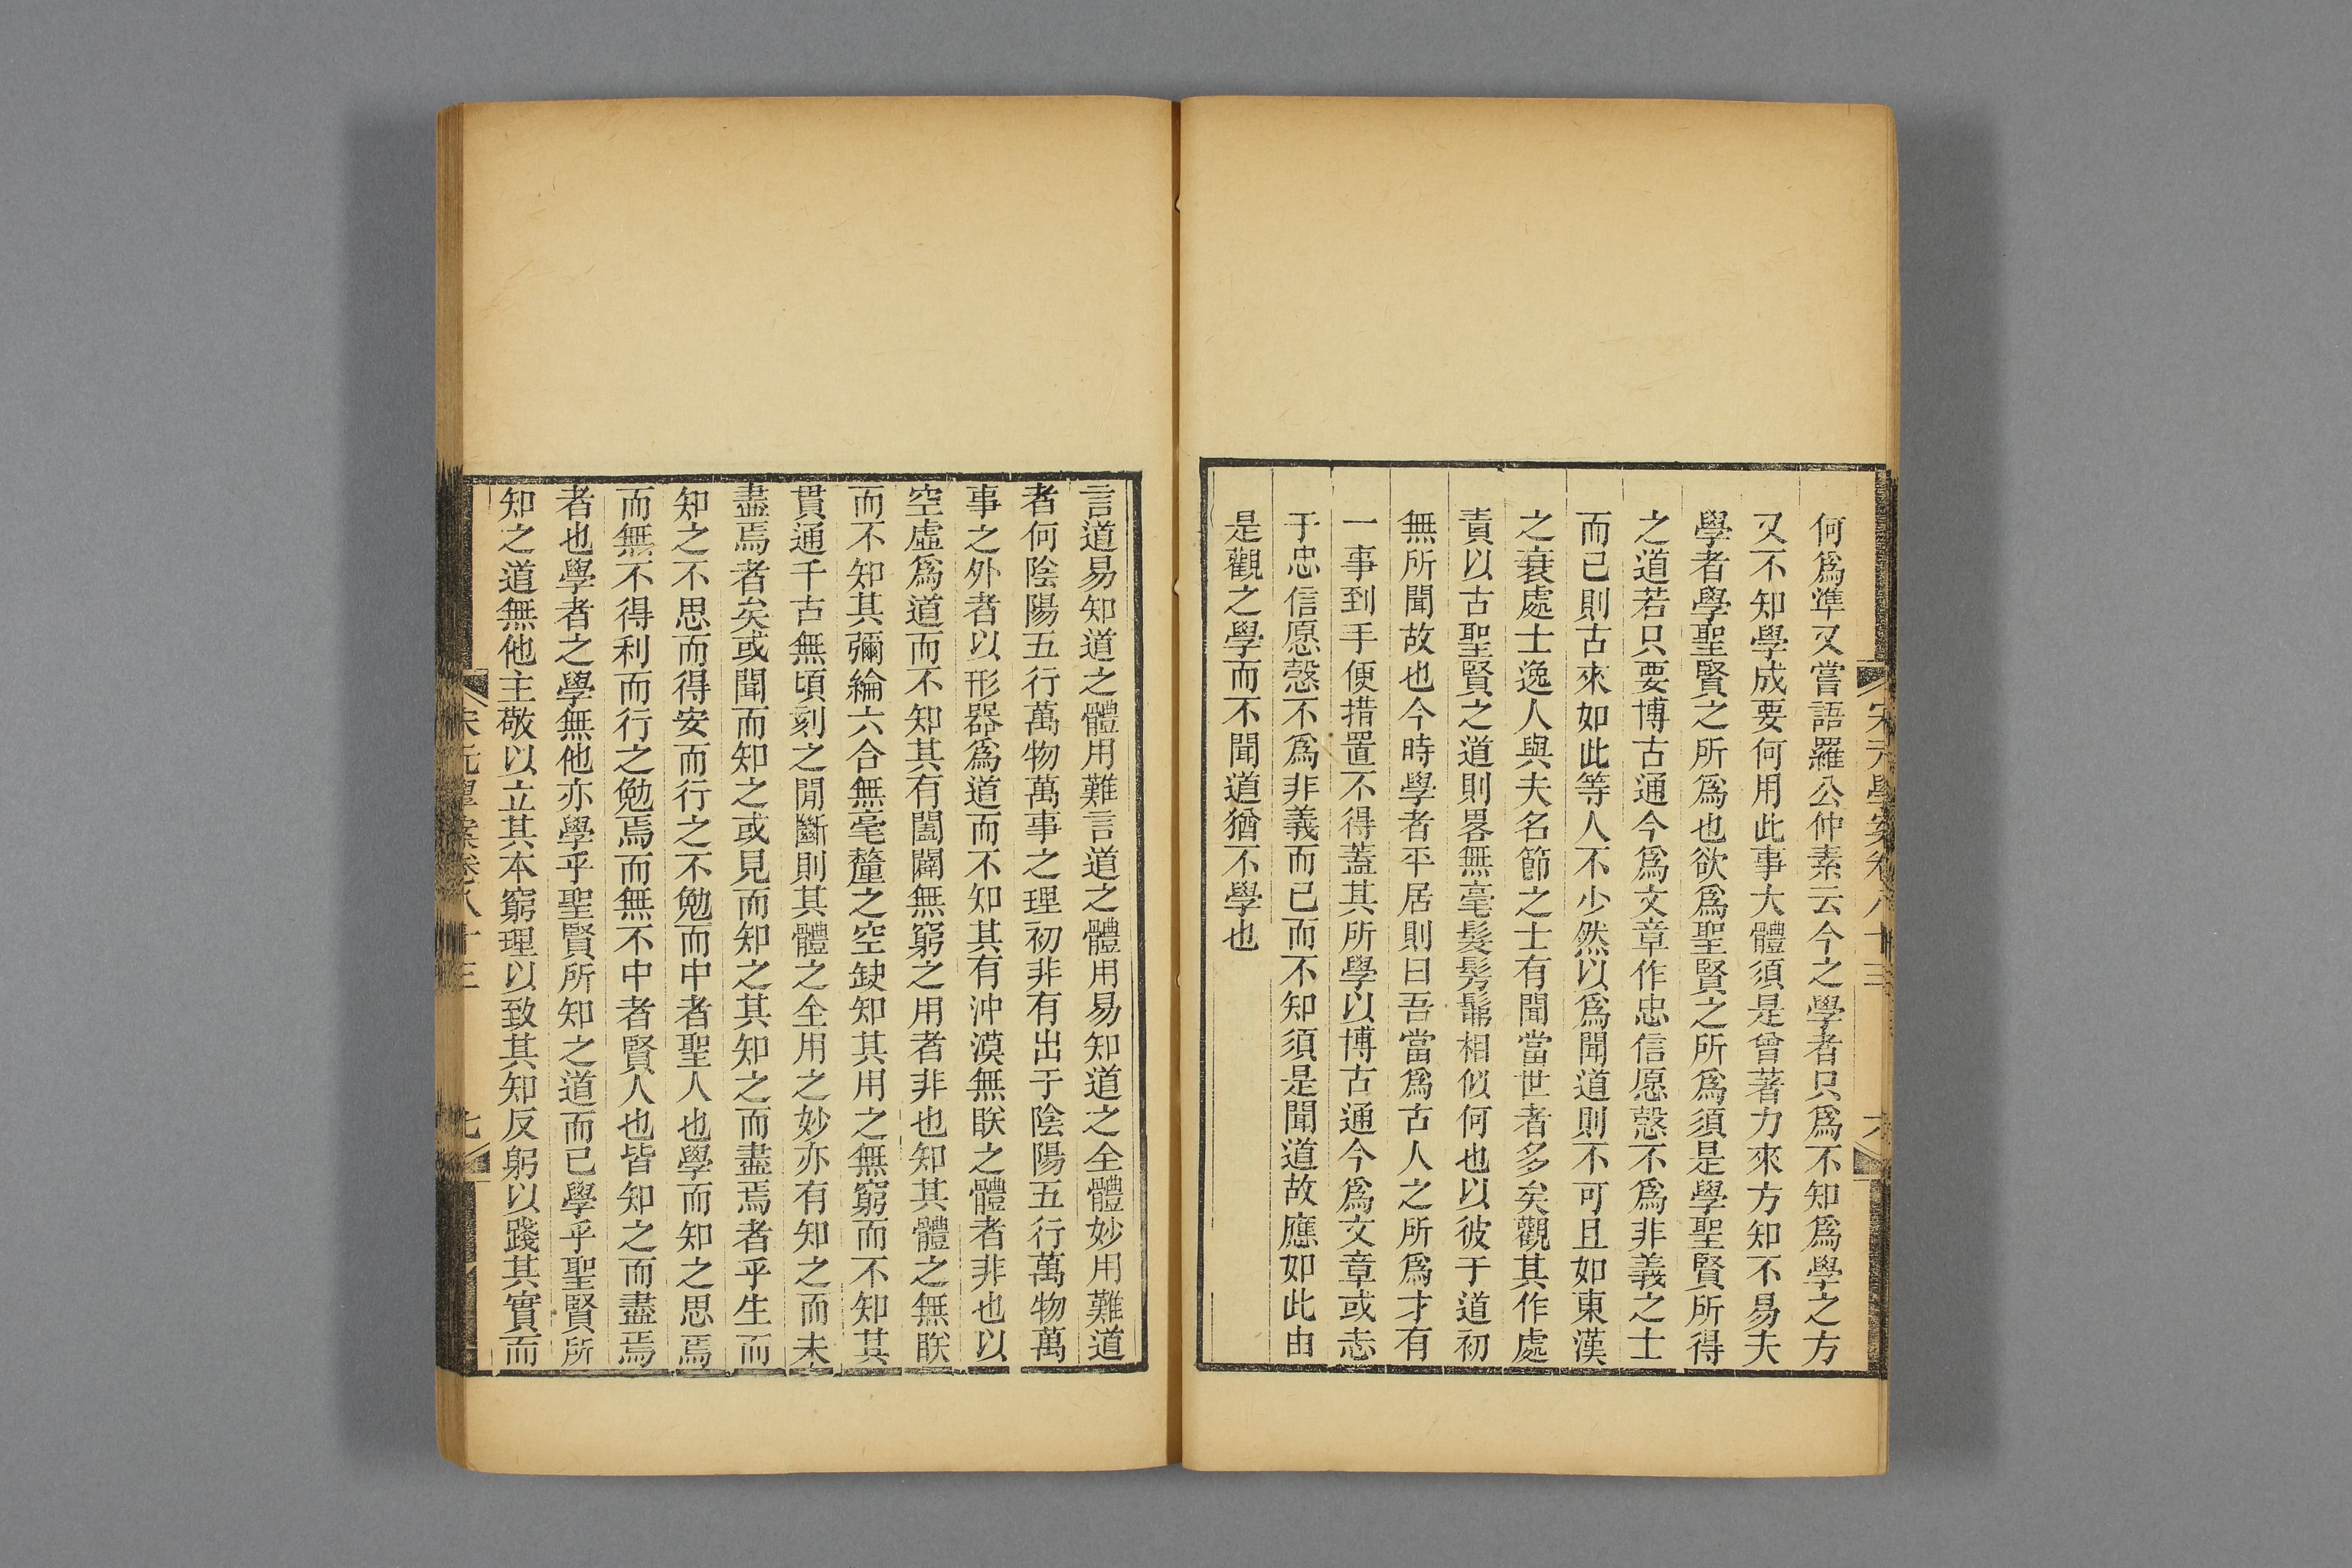 宋元學案卷八十三 六
何爲準又嘗語羅公仲素云今之學者只爲不知爲學之方
又不知學成要何用此事大體須是曾著力來方知不易夫
學者學聖賢之所爲也欲爲聖賢之所爲須是學聖賢所得
之道若只要博古通今爲文章作忠信愿愨不爲非義之士
而已則古來如此等人不少然以爲聞道則不可且如東漢
之衰處士逸人與夫名節之士有聞當世者多矣觀其作處
責以古聖賢之道則畧無毫髮髣髴相似何也以彼于道初
無所聞故也今時學者平居則曰吾當爲古人之所爲才有
一事到手便措置不得蓋其所學以博古通今爲文章或志
于忠信愿愨不爲非義而已而不知須是聞道故應如此由
是觀之學而不聞道猶不學也
言道易知道之體用難言道之體用易知道之全體妙用難道
者何陰陽五行萬物萬事之理初非有出于陰陽五行萬物萬
事之外者以形器爲道而不知其有沖漠無眹之體者非也以
空虛爲道而不知其有闔闢無窮之用者非也知其體之無眹
而不知其彌綸六合無毫釐之空缺知其用之無窮而不知其
貫通千古無頃刻之閒斷則其體之全用之妙亦有知之而未
盡焉者矣或聞而知之或見而知之其知之而盡焉者乎生而
知之不思而得安而行之不勉而中者聖人也學而知之思焉
而無不得利而行之勉焉而無不中者賢人也皆知之而盡焉
者也學者之學無他亦學乎聖賢所知之道而已學乎聖賢所
知之道無他主敬以立其本窮理以致其知反躬以踐其實而
宋元學案卷八十三 七